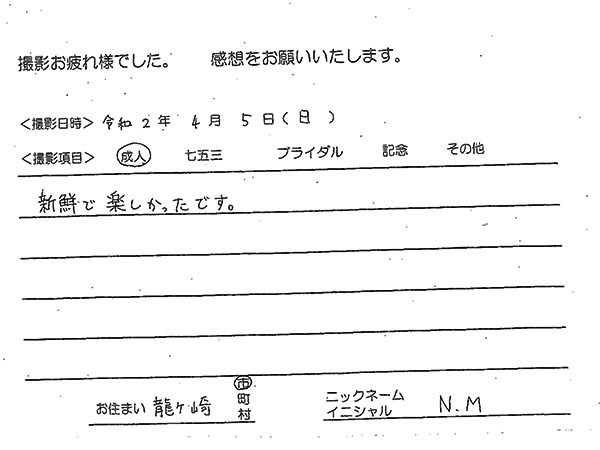 撮影お疲れ様でした。 感想をお願いいたします。
<撮影日時> 令和 2 年 4 月 5 日 ( 日 )
<撮影項目> 成人 七五三 ブライダル 記念 その他
新鮮で楽しかったです。
お住まい 龍ヶ崎 市 町 村 ニックネーム イニシャル N.M